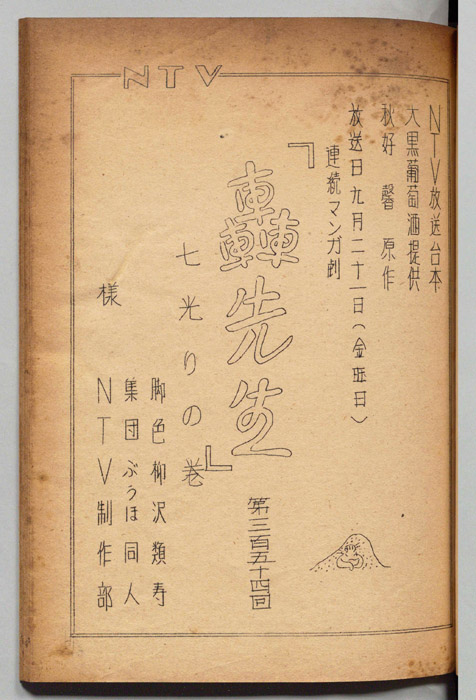 NTV
NTV放送台本
大黒葡萄酒提供
秋好 馨 原作
放送日九月二十一日(金曜日)
連続マンガ劇
『轟先生』
第三百五十四回
七光りの巻
脚色 柳沢類寿
集団ぶうほ同人
NTV制作部
様